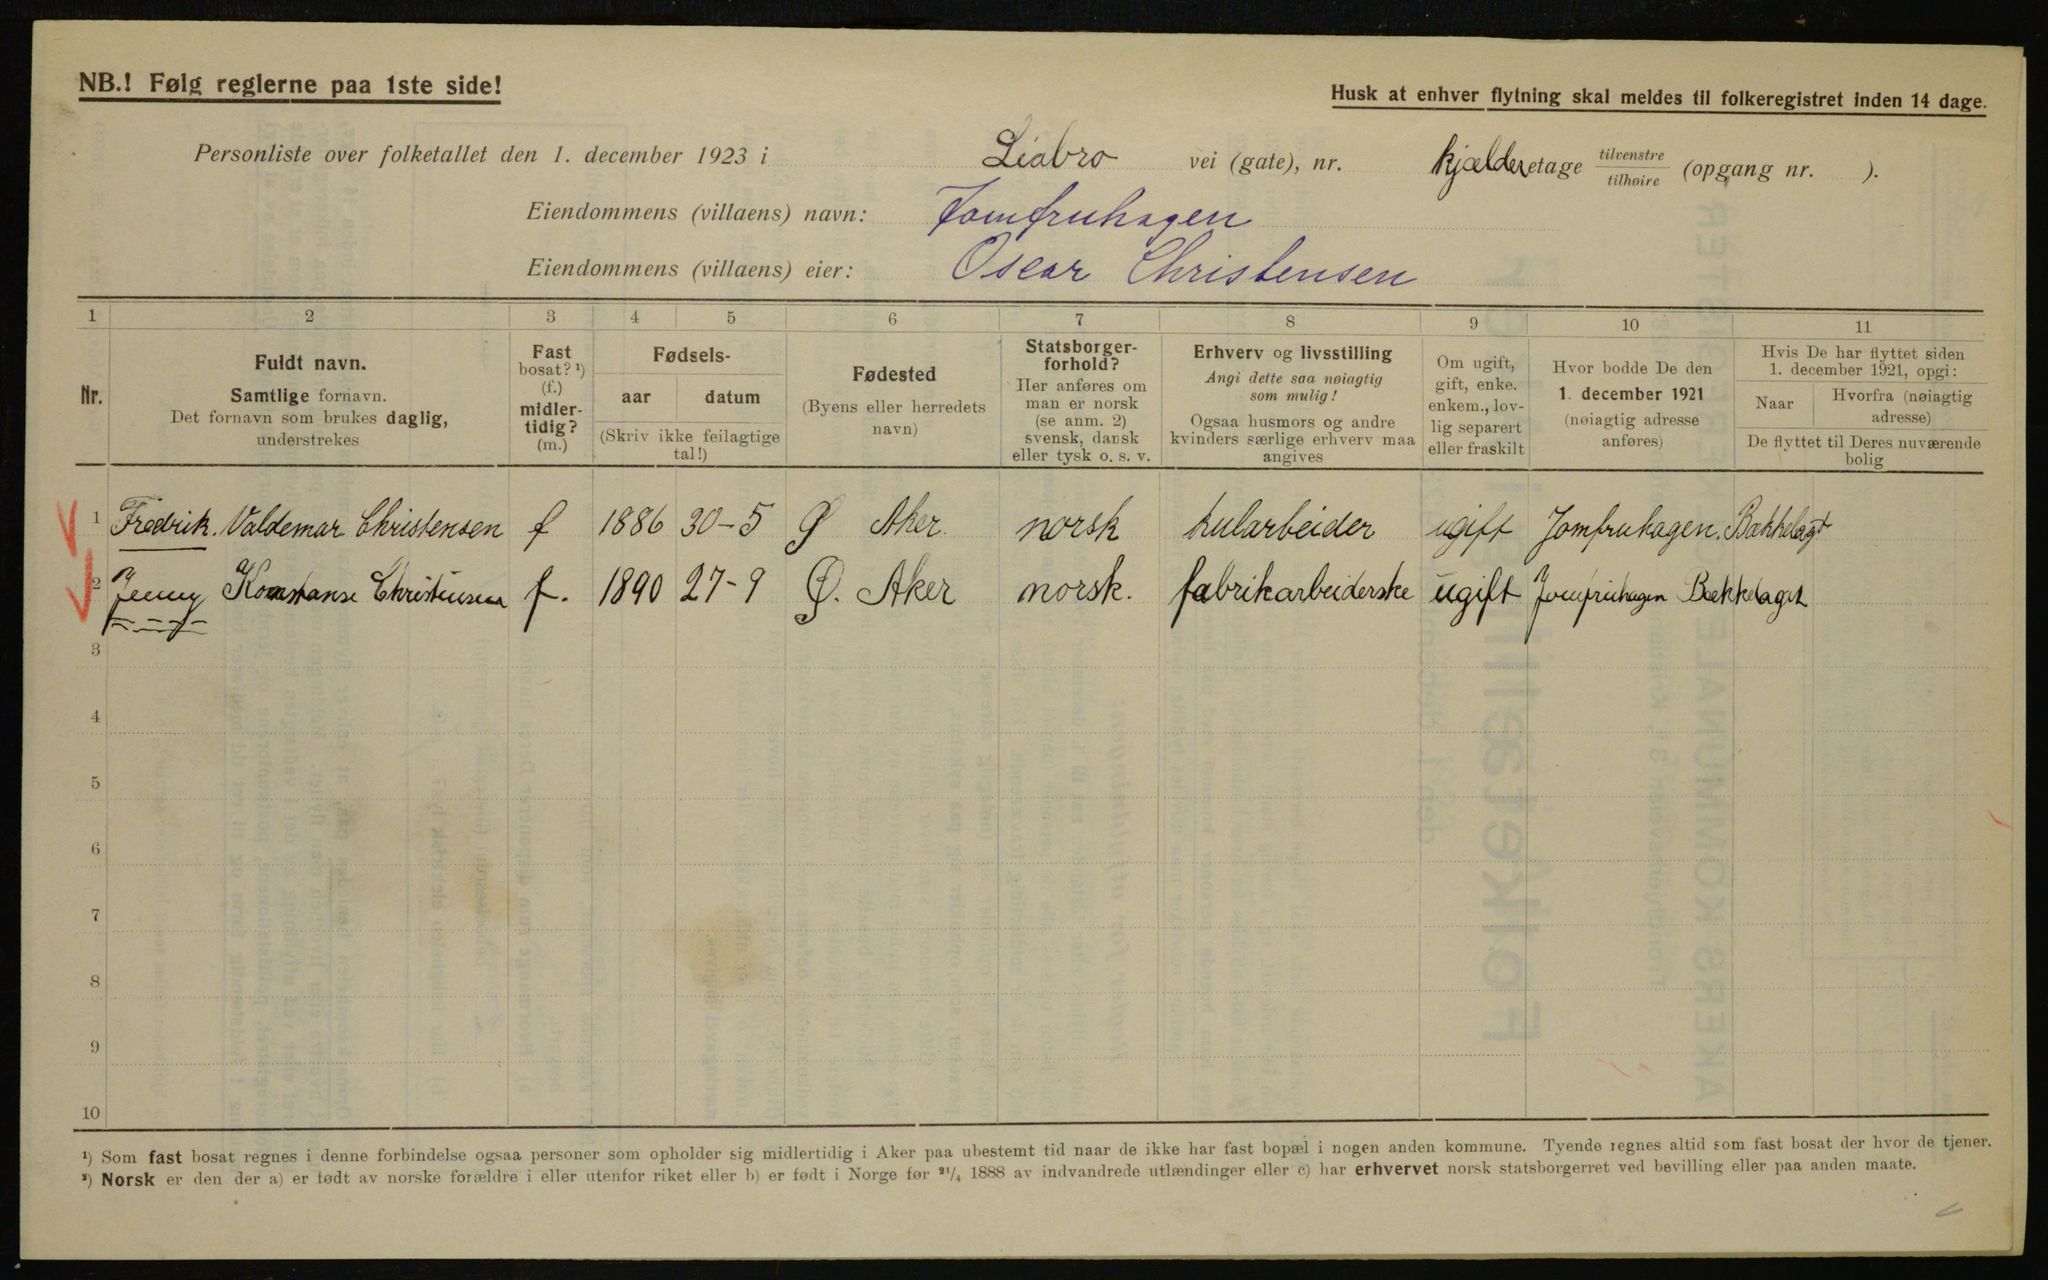 NB.! Følg reglerne paa 1ste side!
Husk at enhver flytning skal meldes til folkeregistret inden 14 dage.
Personliste over folketallet den 1. december 1923 i Liabro vei (gate), nr. kjælderetage tilvenstre/tilhøire (opgang nr. ).
Eiendommens (villaens) navn: Jomfruhagen
Eiendommens (villaens) eier: Oscar Christensen
1 2 3 4 5 6 7 8 9 10 11
Nr.
Fuldt navn.
Samtlige fornavn.
Det fornavn som brukes daglig,
understrekes
Fast
bosat? ¹)
(f.)
midler-
tidig?
(m.)
Fødsels-
aar datum
(Skriv ikke feilagtige
tal!)
Fødested
(Byens eller herredets
navn)
Statsborger-
forhold?
Her anføres om
man er norsk
(se anm. 2)
svensk, dansk
eller tysk o. s. v.
Erhverv og livsstilling
Angi dette saa nøiagtig
som mulig!
Ogsaa husmors og andre
kvinders særlige erhverv maa
angives
Om ugift,
gift, enke.
enkem., lov-
lig separert
eller fraskilt
Hvor bodde De den
1. december 1921
(nøiagtig adresse
anføres)
Hvis De har flyttet siden
1. december 1921, opgi:
Naar Hvorfra (nøiagtig
adresse)
De flyttet til Deres nuværende
bolig
1 Fredrik. Valdemar Christensen f 1886 30-5 Ø Aker norsk kularbeider ugift Jomfruhagen. Bækkelaget
2 Jenny Konstanse Christensen f. 1890 27-9 Ø. Aker norsk. fabrikarbeiderske ugift Jomfruhagen Bækkelaget
3
4
5
6
7
8
9
10
¹) Som fast bosat regnes i denne forbindelse ogsaa personer som opholder sig midlertidig i Aker paa ubestemt tid naar de ikke har fast bopæl i nogen anden kommune. Tyende regnes altid som fast bosat der hvor de tjener.
²) Norsk er den der a) er født av norske forældre i eller utenfor riket eller b) er født i Norge før ²¹/₄ 1888 av indvandrede utlændinger eller c) har erhvervet norsk statsborgerret ved bevilling eller paa anden maate.